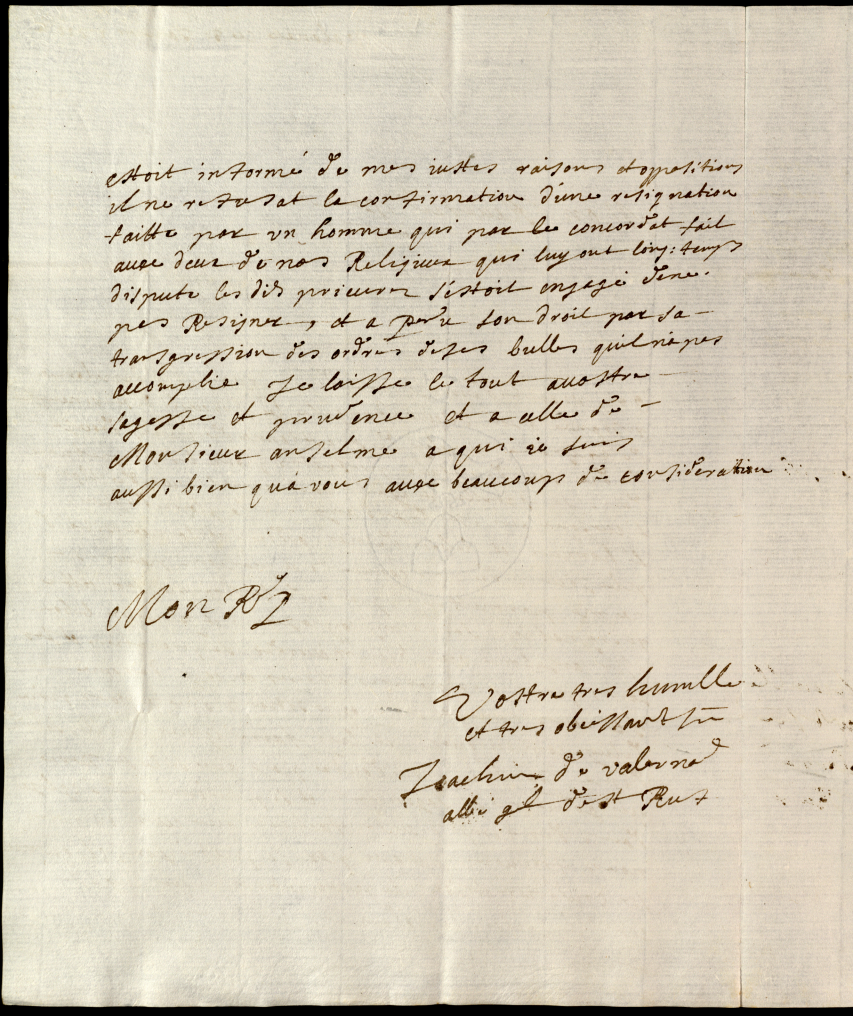 estoit informé de mes iustes raisons et oppositions
il ne refusat la confirmation d'une resignation
faitte par un homme qui par le concordat fait
avec deux de nos Religieux qui luy ont long: temps
dispute les dits prieurez s'éstoit engagé de ne
pas Resigner, et a perdu son droit par sa
transgression des ordres de ses bulles quil n'a pas
accomplie Je laisse le tout a vostre
sagesse et prudence et a celle de
Monsieur anselme a qui ie suis
aussi bien qu'a vous avec beaucoup de consideration
Mon Rd P
Vostre tres humble
et tres obeissant sr
Joachin de valernod
abbé gl de st Ruf